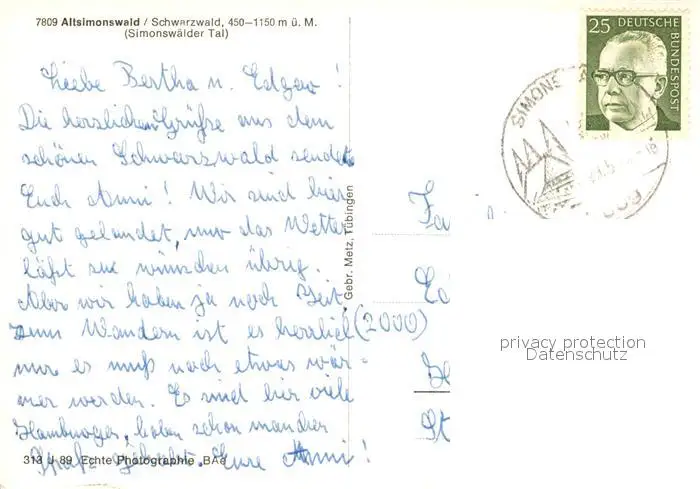 7809 Altsimonswald / Schwarzwald, 450–1150 m ü. M.
(Simonswälder Tal)
Liebe Bertha u. Edgar!
Die herzlichen Grüße aus dem
schönen Schwarzwald sendet
Euch Anni! Wir sind hier
gut gelandet, nur das Wetter
läßt zu wünschen übrig.
Aber wir haben ja noch Zeit.
Zum Wandern ist es herrlich (2000)
nur es muß noch etwas wär-
mer werden. Es sind hier viele
Hamburger, haben schon manchen
Spaß gehabt. Eure Anni!
313 J 89 Echte Photographie BAd
Gebr. Metz, Tübingen
25 DEUTSCHE
BUNDESPOST
SIMONS
Fa
Ed
St
privacy protection
Datenschutz